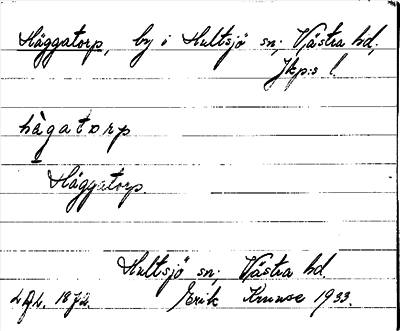 Häggatorp, by i Hultsjö sn; Västra hd,
Jkp:s l.
hàgatorp
Häggatorp.
Hultsjö sn; Västra hd.
Erik Krunse 1933.